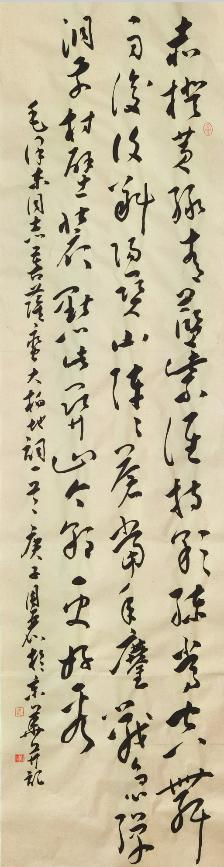 赤橙黄绿青蓝紫谁持彩练当空舞
雨后复斜阳关山阵阵苍当年鏖战急弹
洞前村壁装点此关山今朝更好看
毛泽东同志菩萨蛮大柏地词一首庚子国君於京華并记